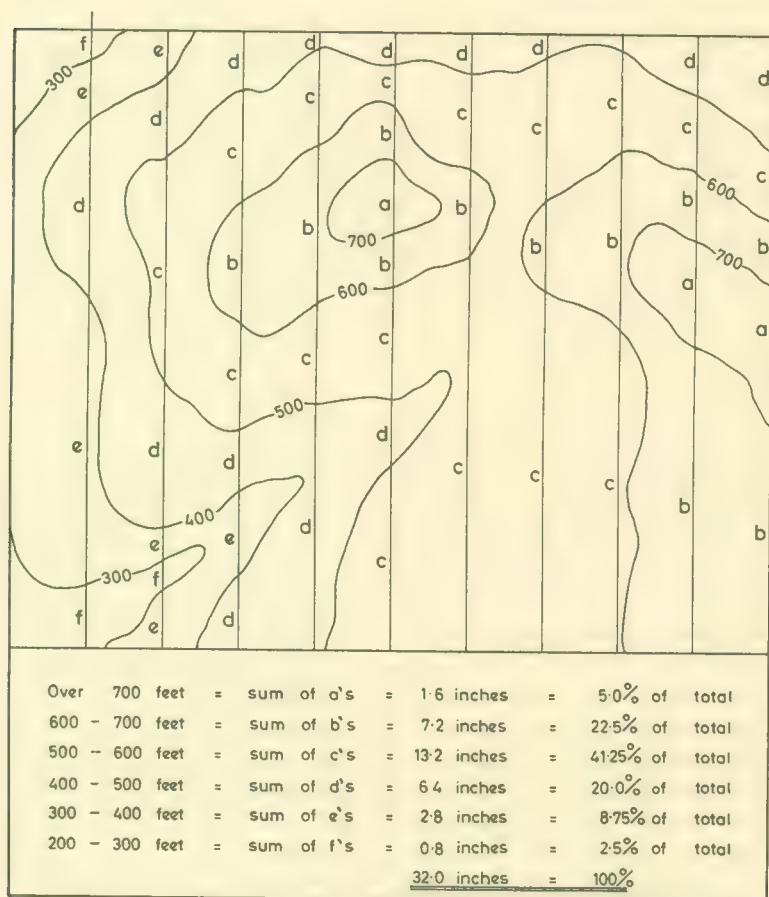 f
e
d
d
d
d
d
d
d
300
e
c
c
c
c
d
c
b
c
c
c
600
d
a
b
b
b
700
b
b
b
700
b
b
c
600
a
a
c
c
c
500
d
e
d
d
c
c
c
b
400
d
b
e
e
c
300
f
f
d
e
Over 700 feet = sum of a's = 1·6 inches = 5·0% of total
600 – 700 feet = sum of b's = 7·2 inches = 22·5% of total
500 – 600 feet = sum of c's = 13·2 inches = 41·25% of total
400 – 500 feet = sum of d's = 64 inches = 20·0% of total
300 – 400 feet = sum of e's = 2·8 inches = 8·75% of total
200 – 300 feet = sum of f's = 0·8 inches = 2·5% of total
32·0 inches = 100%